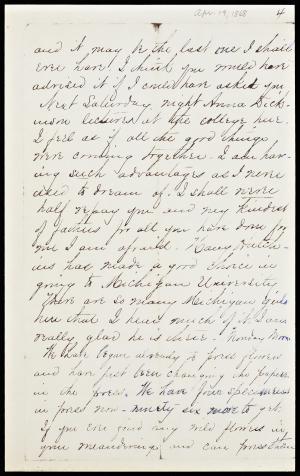 Apr. 19, 1868 4
and it may be the last one I shall
ever have. I think you would have
advised it if I could have asked you
Next Saturday night Anna Dick-
inson lectures at the college here.
I feel as if all the good things
were coming together. I am hav-
ing such advantages as I never
used to dream of. I shall never
half repay you and my kindest
of fathers for all you have done for
me I am afraid.
has made a good choice in
going to Michigan University
There are so many Michigan girls
here that I hear much of it. I am
really glad he is there. Monday Morn
We have begun already to press flowers
and have just been changing the papers
in the press. We have four specimens
in press now - ninety six more to get.
If you ever find any wild flowers in
your meanderings and can press them